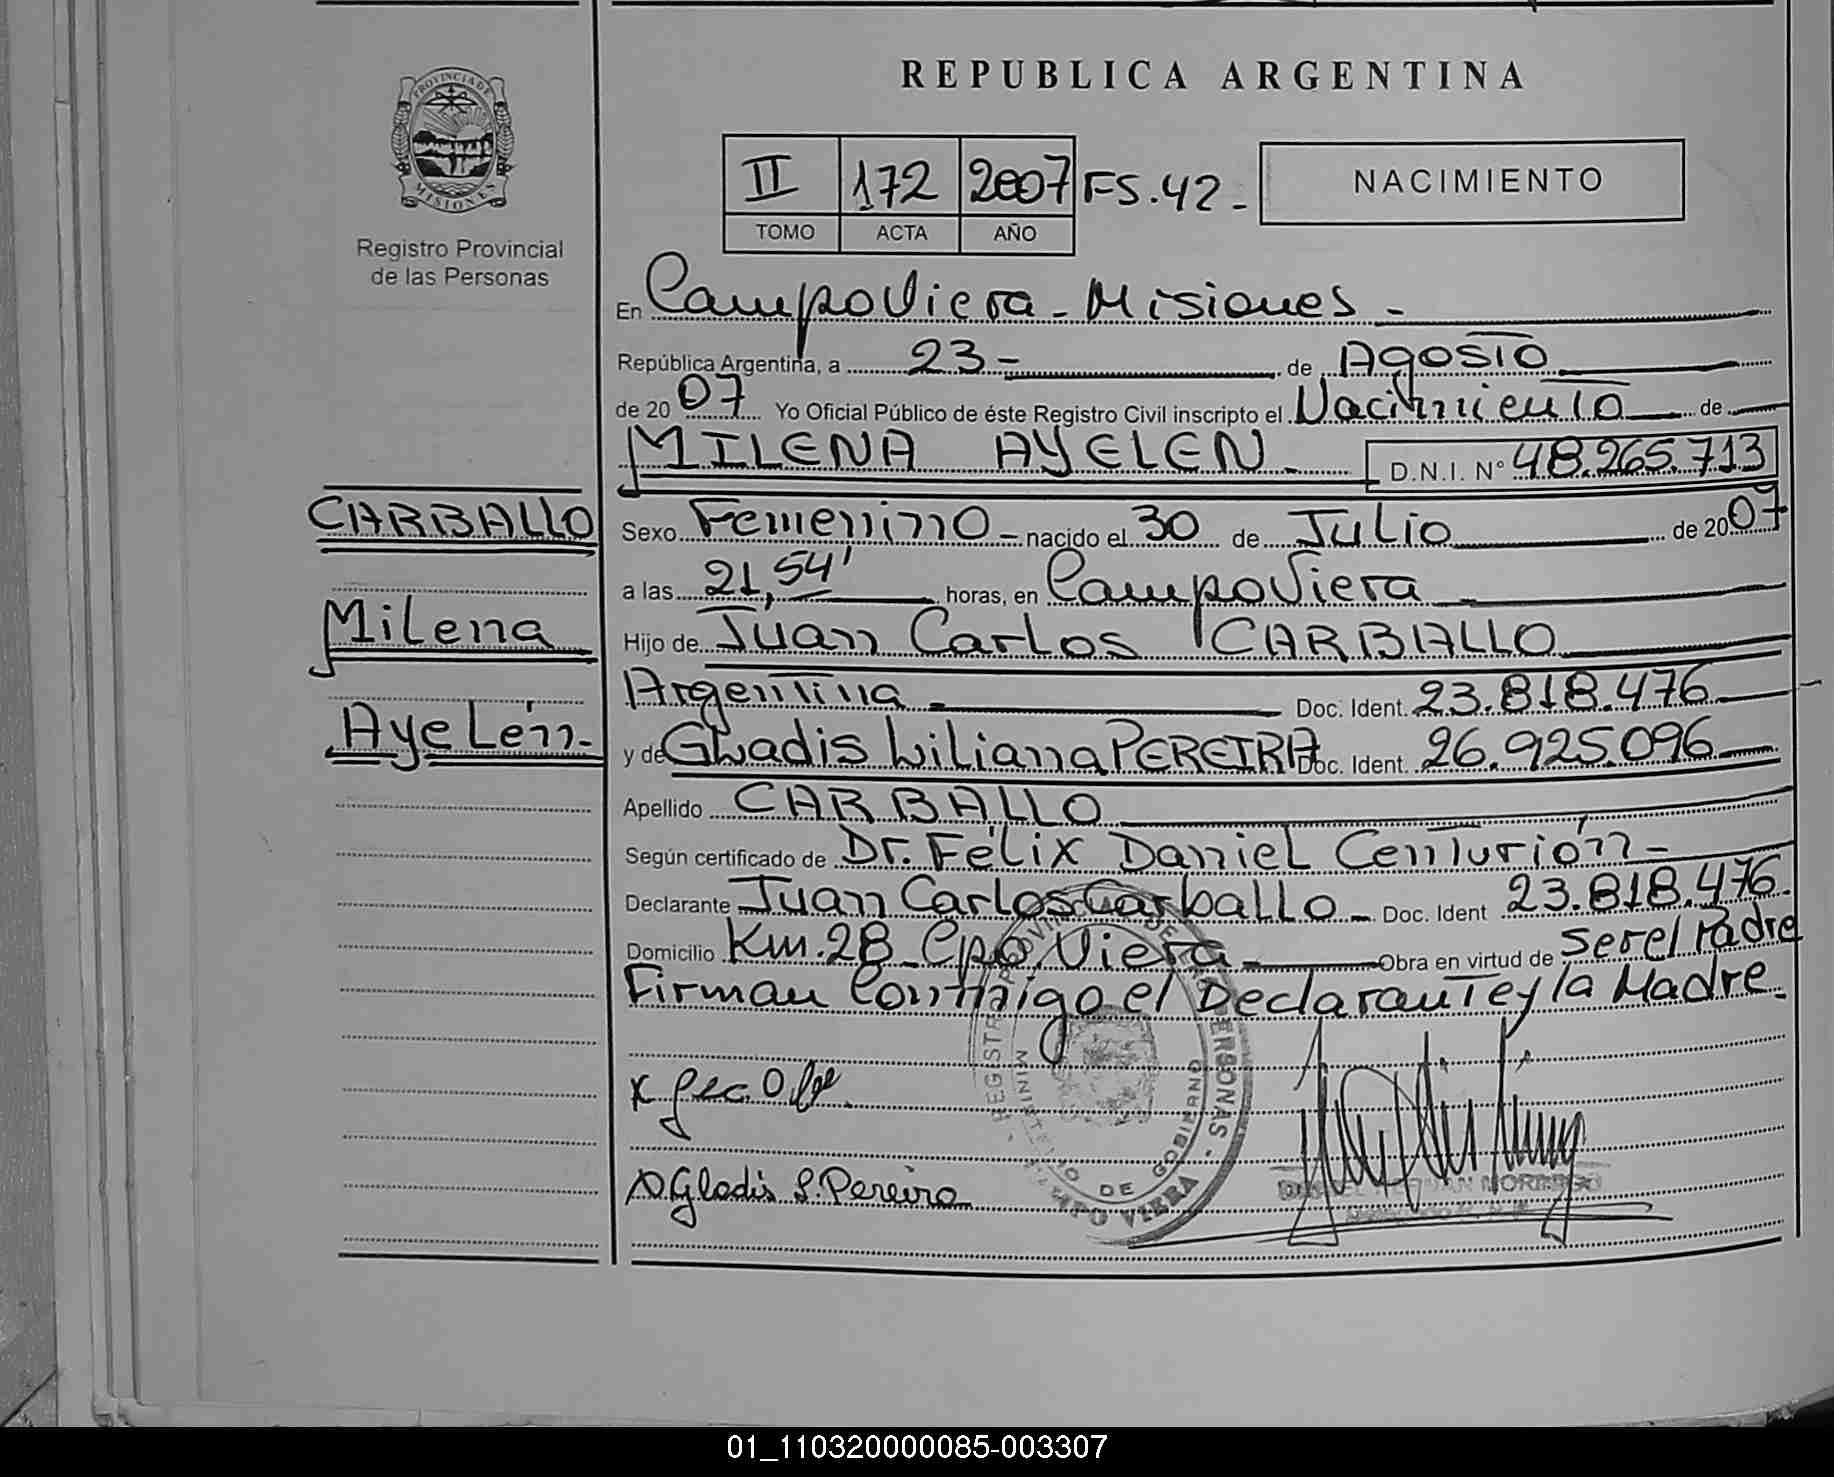 REPUBLICA ARGENTINA
PROVINCIA DE
MISIONES
Registro Provincial
de las Personas
II 172 2007 FS.42-
TOMO ACTA AÑO
NACIMIENTO
En Campo Viera - Misiones -
República Argentina, a 23- de Agosto
de 2007 Yo Oficial Público de éste Registro Civil inscripto el Nacimiento de
MILENA AYELEN - D.N.I. N° 48.265.713
CARBALLO
Milena
Ayelén-
Sexo Femenino - nacido el 30 de Julio de 2007
a las 21,54' horas, en Campo Viera -
Hijo de Juan Carlos CARBALLO
Argentina - Doc. Ident. 23.818.476
y de Gladis Liliana PEREIRA Doc. Ident. 26.925.096
Apellido CARBALLO
Según certificado de Dr. Félix Daniel Centurión -
Declarante Juan Carlos Carballo - Doc. Ident 23.818.476
Domicilio Km.28 - Cpo. Viera - Obra en virtud de ser el Padre
Firman Conmigo el Declarante y la Madre.
Gladis L. Pereira
REGISTRO PROVINCIAL DE LAS PERSONAS
MINISTERIO DE GOBIERNO
CAMPO VIERA
01_110320000085-003307